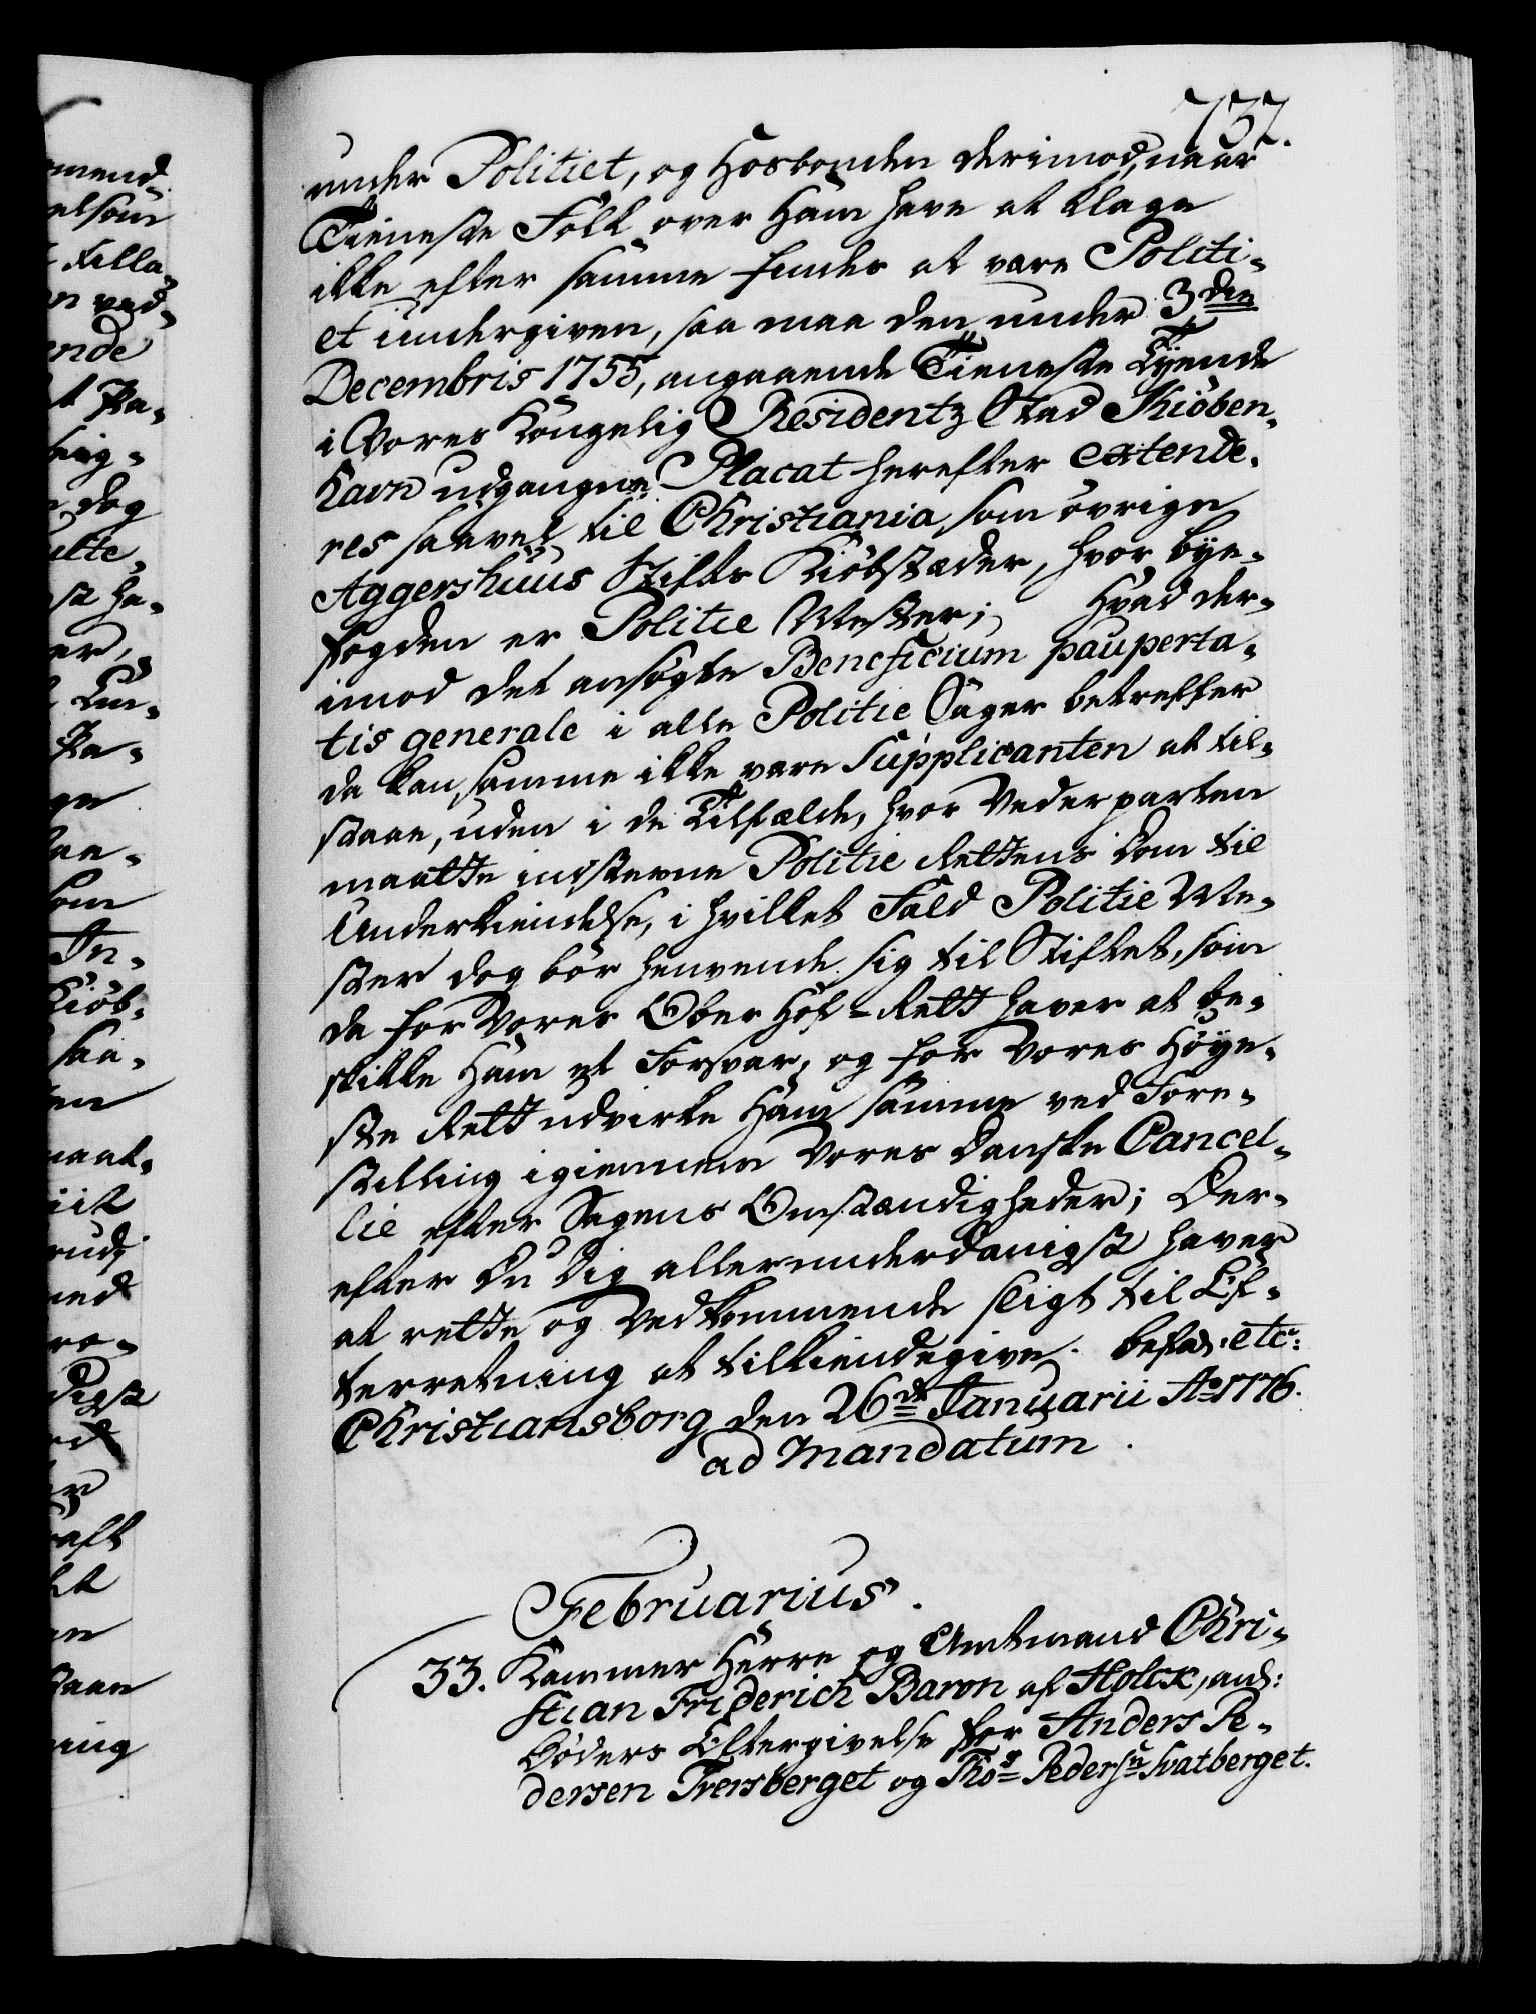 737.
under Politiet, og Hosbonden derimod, naar
Tieneste Folk over Ham have at klage
ikke efter samme findes at være Politi-
et undergiven, saa maa den under 3den
Decembris 1755, angaaende Tieneste Tyende
i Vores Kongelig Residentz Stad Kiöben-
havn udgangne Placat herefter extende-
res saavel til Christiania, som övrige
Aggershuus Stifts Kiöbstæder, hvor bye-
fogden er Politie Mester; Hvad der-
imod det ansögte Beneficium pauperta-
tis generale i alle Politie Sager betreffer
da kan samme ikke være Supplicanten at til-
staae, uden i de Tilfælde, hvor Vederparten
maatte indstevne Politie Rettens Dom til
Underkiendelse, i hvilket Fald Politie Me-
ster dog bör henvende sig til Stiftet, som
da for Vores Ober Hof-Rett haver at be-
skikke Ham et Forsvar, og for Vores Höye-
ste Rett udvirke Ham samme ved Fore-
stilling igiennem Vores Danske Cancel-
lie efter Sagens Omstændigheder; Der-
efter Du Dig allerunderdanigst haver
at rette og Vedkommende sligt til Ef-
terretning at tilkiendegive. Befal: etc:
Christiansborg den 26de Januarii Ao 1776.
ad Mandatum.
Februarius.
33. Kammer Herre og Amtmand Chri-
stian Friderich Baron af Holck, anl:
Böders Eftergivelse for Anders Pe-
dersen Trersberget og Thos Pedersn Svatberget.